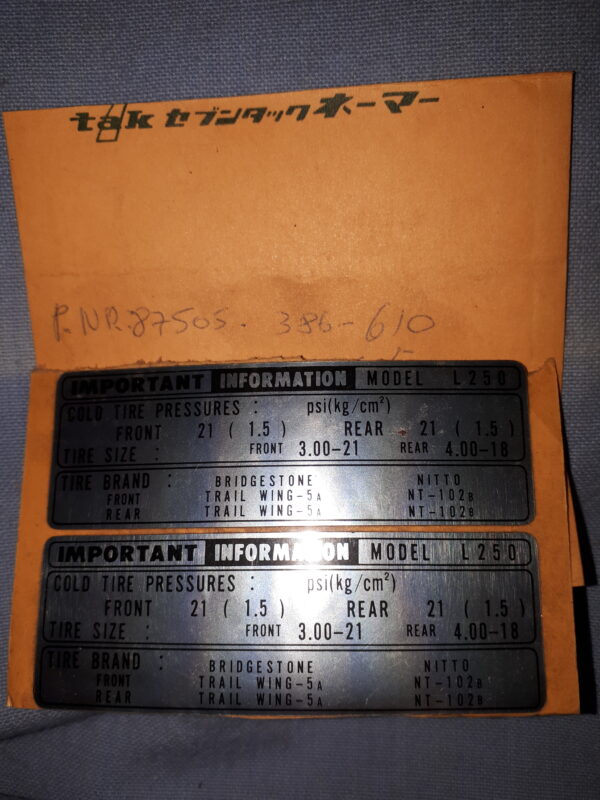 tak セブンタックネーマー
P.NR.87505. 386-610
IMPORTANT INFORMATION MODEL L250
COLD TIRE PRESSURES : psi(kg/cm²)
FRONT 21 ( 1.5 ) REAR 21 ( 1.5 )
TIRE SIZE : FRONT 3.00-21 REAR 4.00-18
TIRE BRAND : BRIDGESTONE NITTO
FRONT TRAIL WING-5A NT-102B
REAR TRAIL WING-5A NT-102B
IMPORTANT INFORMATION MODEL L250
COLD TIRE PRESSURES : psi(kg/cm²)
FRONT 21 ( 1.5 ) REAR 21 ( 1.5 )
TIRE SIZE : FRONT 3.00-21 REAR 4.00-18
TIRE BRAND : BRIDGESTONE NITTO
FRONT TRAIL WING-5A NT-102B
REAR TRAIL WING-5A NT-102B